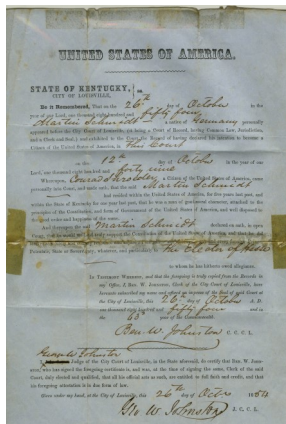 UNITED STATES OF AMERICA.
STATE OF KENTUCKY,
CITY OF LOUISVILLE,
Be it Remembered, That on the 26th day of October in the
year of our Lord, one thousand eight hundred and fifty four
Martin Schmidt a native of Germany personally
appeared before the City Court of Louisville, (it being a Court of Record, having Common Law Jurisdiction,
and a Clerk and Seal,) and exhibited to the Court the Record of having declared his intention to become a
Citizen of the United States of America, in this Court
on the 12th day of October in the year of our
Lord, one thousand eight hundred and forty nine
Whereupon, Conrad a Citizen of the United States of America, came
personally into Court, and made oath; that the said Martin Schmidt
had resided within the United States for five years last past, and within the
State of Kentucky for one year last past, that he was a man of good moral character, attached to the
principles of the Constitution, and form of Government of the United States of America, and well disposed to
the good order and happiness of the same.
And thereupon the said Martin Schmidt declared on oath, in open
Court, that he would support the Constitution of the United States of America, and that he did
Potentate, State or Sovereignty, whatever, and particularly to the Elector of Hesse
to whom he has hitherto owed allegiance.
In Testimony Whereof, and that the foregoing is truly copied from the Records in
my Office, I Ben. W. Johnston, Clerk of the City Court of Louisville, have
hereunto subscribed my name and affixed an impress of the Seal of said Court at
the City of Louisville, this 26th day of October A. D.
one thousand eight hundred and fifty four and in
the year of the Commonwealth.
Ben. W. Johnston C. C. C. L.
George W Johnston
Judge of the City Court of Louisville, in the State aforesaid, do certify that Ben. W. Johnston,
who has signed the foregoing certificate, is, and was, at the time of signing the same, Clerk of the said
Court, duly elected and qualified, that all his official acts as such, are entitled to full faith and credit, and that
his foregoing attestation is in due form of law.
Given under my hand, at the City of Louisville, this 26th Octr 1854
Geo W Johnston J. C. C. L.